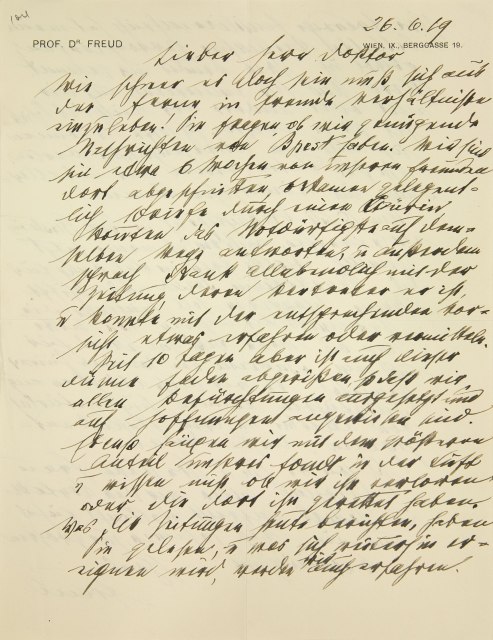 26.6.19
PROF. Dr FREUD
WIEN, IX., BERGGASSE 19.
Lieber Herr Doktor
Wie schwer es doch sein muß sich aus
der Ferne in fremde Verhältniße
einzuleben! Sie fragen ob wir genügende
Nachrichten von Bpest haben. Wir sind
seit etwa 6 Wochen von unseren Freunden
dort abgeschnitten, bekamen gelegent-
lich Briefe durch einen
konnten das Notdürftigste auf dem-
selben Weg antworten, u außerdem
sprach Rank allabendlich mit der
Zeitung deren Vertreter er ist,
u konnte mit der entsprechenden Vor-
sicht etwas erfahren oder vermitteln.
Seit 10 Tagen aber ist auch dieser
dünne Faden abgerißen, so daß wir
allen Befürchtungen ausgesetzt und
auf Hoffnungen angewiesen sind.
Ebenso hängen wir mit dem größeren
Anteil unseres Fonds in der Luft
u wissen nicht ob wir ihn verloren
oder die dort ihn gerettet haben.
Was die Zeitungen heute berichten, haben
Sie gelesen, u was sich weiter er-
eignen wird, werden wir auch erfahren.